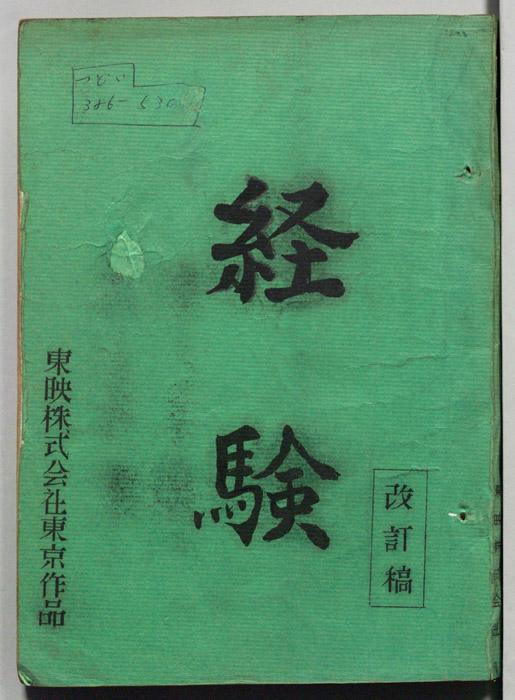 つどい
386-530
経験
改訂稿
東映株式会社東京作品